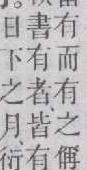 有而有之偁
書有者、皆有
日下之月、衍